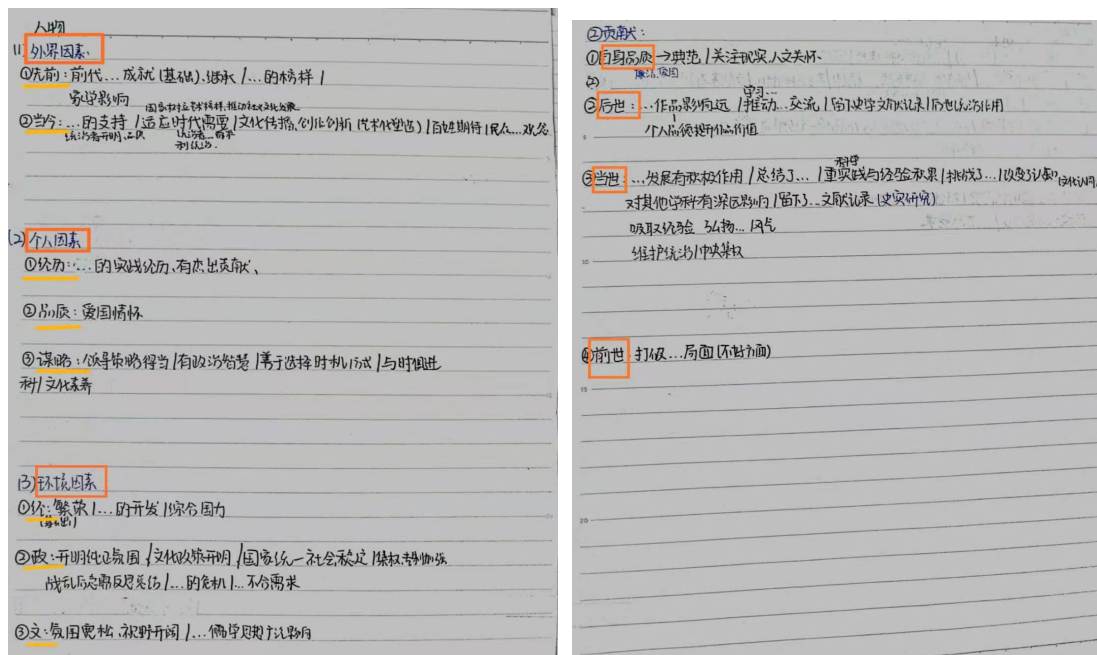 人物
(1) 外界因素、
①先前：前代…成就(基础)、继承 / …的榜样 /
家学影响
国家树立艺术榜样,推动社会文化发展
②当今：…的支持 / 适应时代需要 / 文化传播、创业创新 (艺术化塑造) / 百姓期待 / 民众…观念
统治者开明、品质
统治者…需求
利统治.
(2) 个人因素
①经历：…的实践经历、有杰出贡献、
②品质：爱国情怀
③谋略：领导策略得当 / 有政治智慧 / 善于选择时机 / 方式 / 与时俱进
科 / 文化素养
(3) 环境因素
①经：繁荣 / …的开发 / 综合国力
②政：开明纯正氛围 / 文化政策开明 / 国家统一社会稳定 / 集权、专制加强
战乱后急需反思总结 / …的危机 / …不合需求
③文：氛围宽松、视野开阔 / …儒学思想广泛影响
②贡献：
①自身品质→典范 / 关注现实、人文关怀、
(2)
廉洁、爱国
学习…
②后世：…作品影响远 / 推动…交流 / 留下史学文献记录 / 后世统治借用
个人品德提升作品价值
科学
③当世：…发展有积极作用 / 总结了… / 重实践与经验积累 / 挑战了… / 改变了认识 / 文化认同
对其他学科有深远影响 / 留下…文献记录 (史实研究)
吸取经验 弘扬… / 风气
维护统治 / 中央集权
④前世 打破…局面 (不好方面)